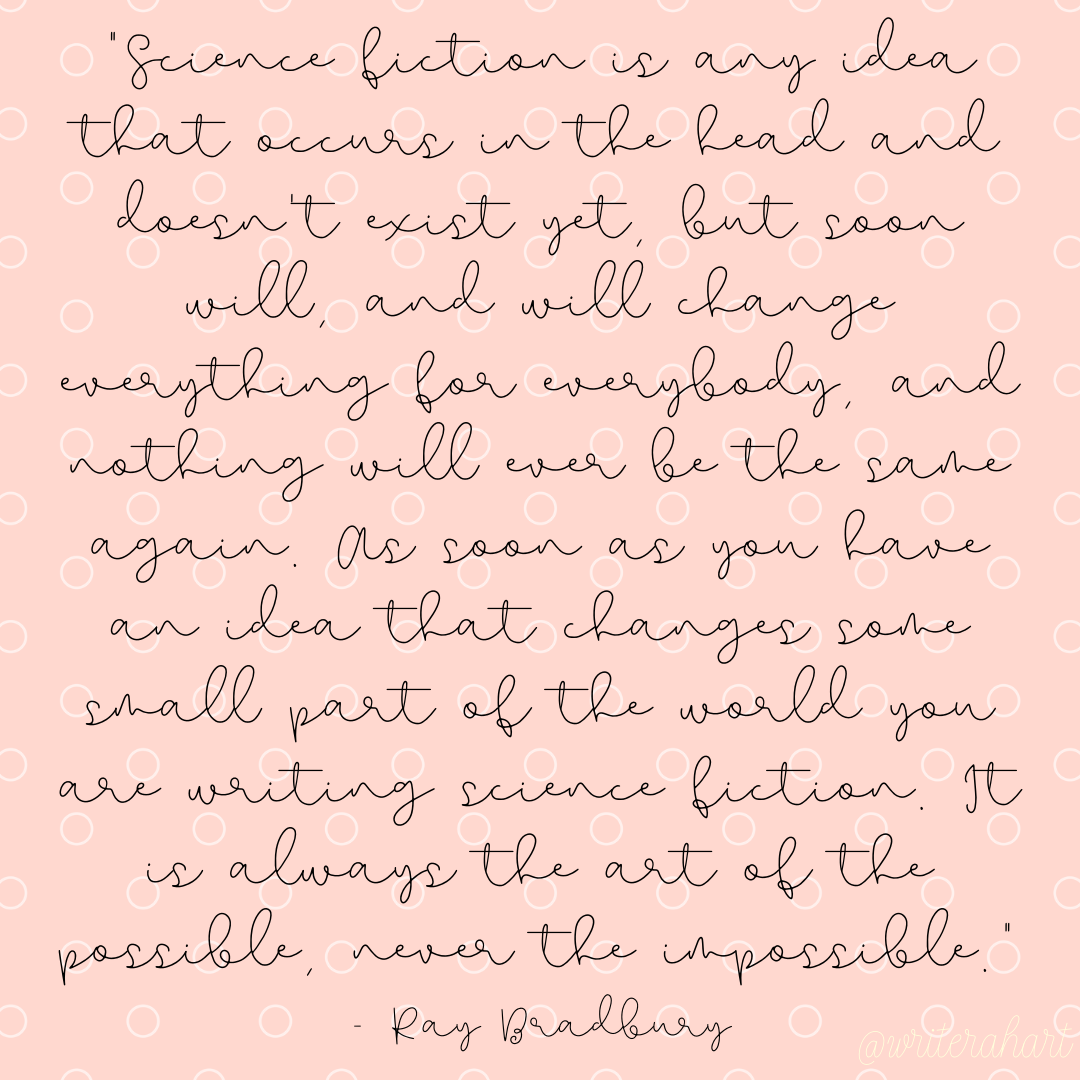 "Science fiction is any idea
that occurs in the head and
doesn't exist yet, but soon
will, and will change
everything for everybody, and
nothing will ever be the same
again. As soon as you have
an idea that changes some
small part of the world you
are writing science fiction. It
is always the art of the
possible, never the impossible."
- Ray Bradbury
@writerahart